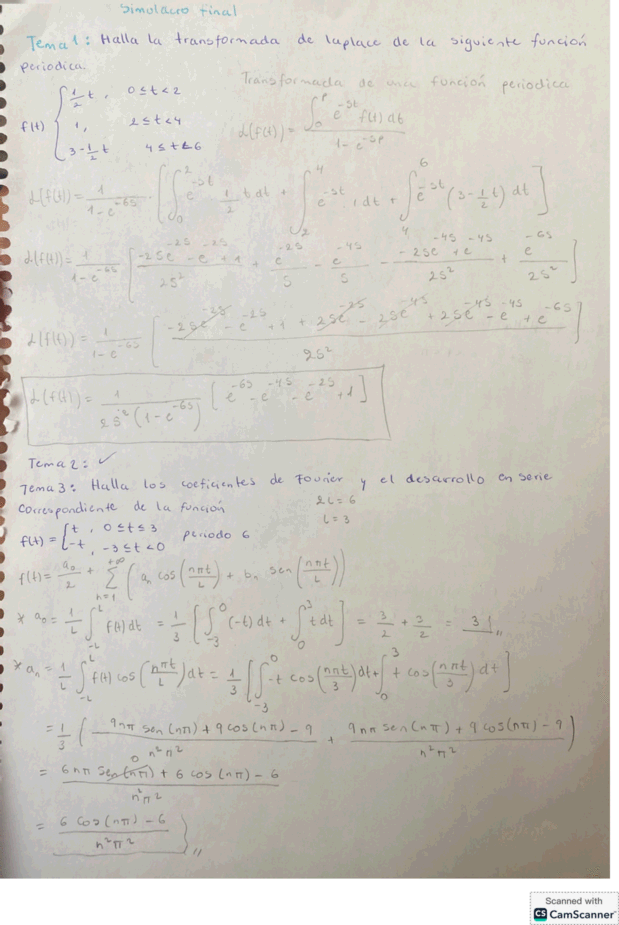 Simulacro final
Tema 1: Halla la transformada de laplace de la siguiente función
periodica.
Transformada de una función periodica
f(t) { 1/2 t, 0≤t<2
1, 2≤t<4
3-1/2 t 4≤t<6
𝓛(f(t)) = ∫₀^P e^(-st) f(t) dt / 1-e^(-sP)
𝓛(f(t)) = 1/(1-e^(-6s)) · [∫₀² e^(-st) 1/2 t dt + ∫₂⁴ e^(-st) . 1 dt + ∫₄⁶ e^(-st) (3-1/2 t) dt]
𝓛(f(t)) = 1/(1-e^(-6s)) [(-2se^(-2s) - e^(-2s) + 1)/2s² + e^(-2s)/s - e^(-4s)/s - (-2se^(-4s) + e^(-4s))/2s² + e^(-6s)/2s²]
𝓛(f(t)) = 1/(1-e^(-6s)) [(-2se^(-2s) - e^(-2s) + 1 + 2se^(-2s) - 2se^(-4s) + 2se^(-4s) - e^(-4s) + e^(-6s))/2s²]
𝓛(f(t)) = 1/(2s²(1-e^(-6s))) [e^(-6s) - e^(-4s) - e^(-2s) + 1]
Tema 2: ✓
Tema 3: Halla los coeficientes de Fourier y el desarrollo en serie
correspondiente de la función
2L=6
L=3
f(t)= { t, 0≤t≤3
-t, -3≤t<0 periodo 6
f(t) = a₀/2 + Σ_(n=1)^(+∞) (aₙ cos(nπt/L) + bₙ sen(nπt/L))
* a₀ = 1/L ∫_(-L)^L f(t) dt = 1/3 [∫_(-3)^0 (-t) dt + ∫₀³ t dt] = 3/2 + 3/2 = 3
* aₙ = 1/L ∫_(-L)^L f(t) cos(nπt/L) dt = 1/3 [∫_(-3)^0 -t cos(nπt/3) dt + ∫₀³ t cos(nπt/3) dt]
= 1/3 ((9nπ sen(nπ) + 9 cos(nπ) - 9)/n²π² + (9nπ sen(nπ) + 9 cos(nπ) - 9)/n²π²)
= (6nπ sen(nπ) + 6 cos(nπ) - 6)/n²π²
0
= (6 cos(nπ) - 6)/n²π²
Scanned with
CS CamScanner